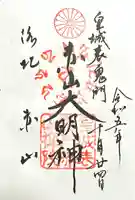 皇城表鬼門
令和五年
十月廿四日
赤山大明神
赤山